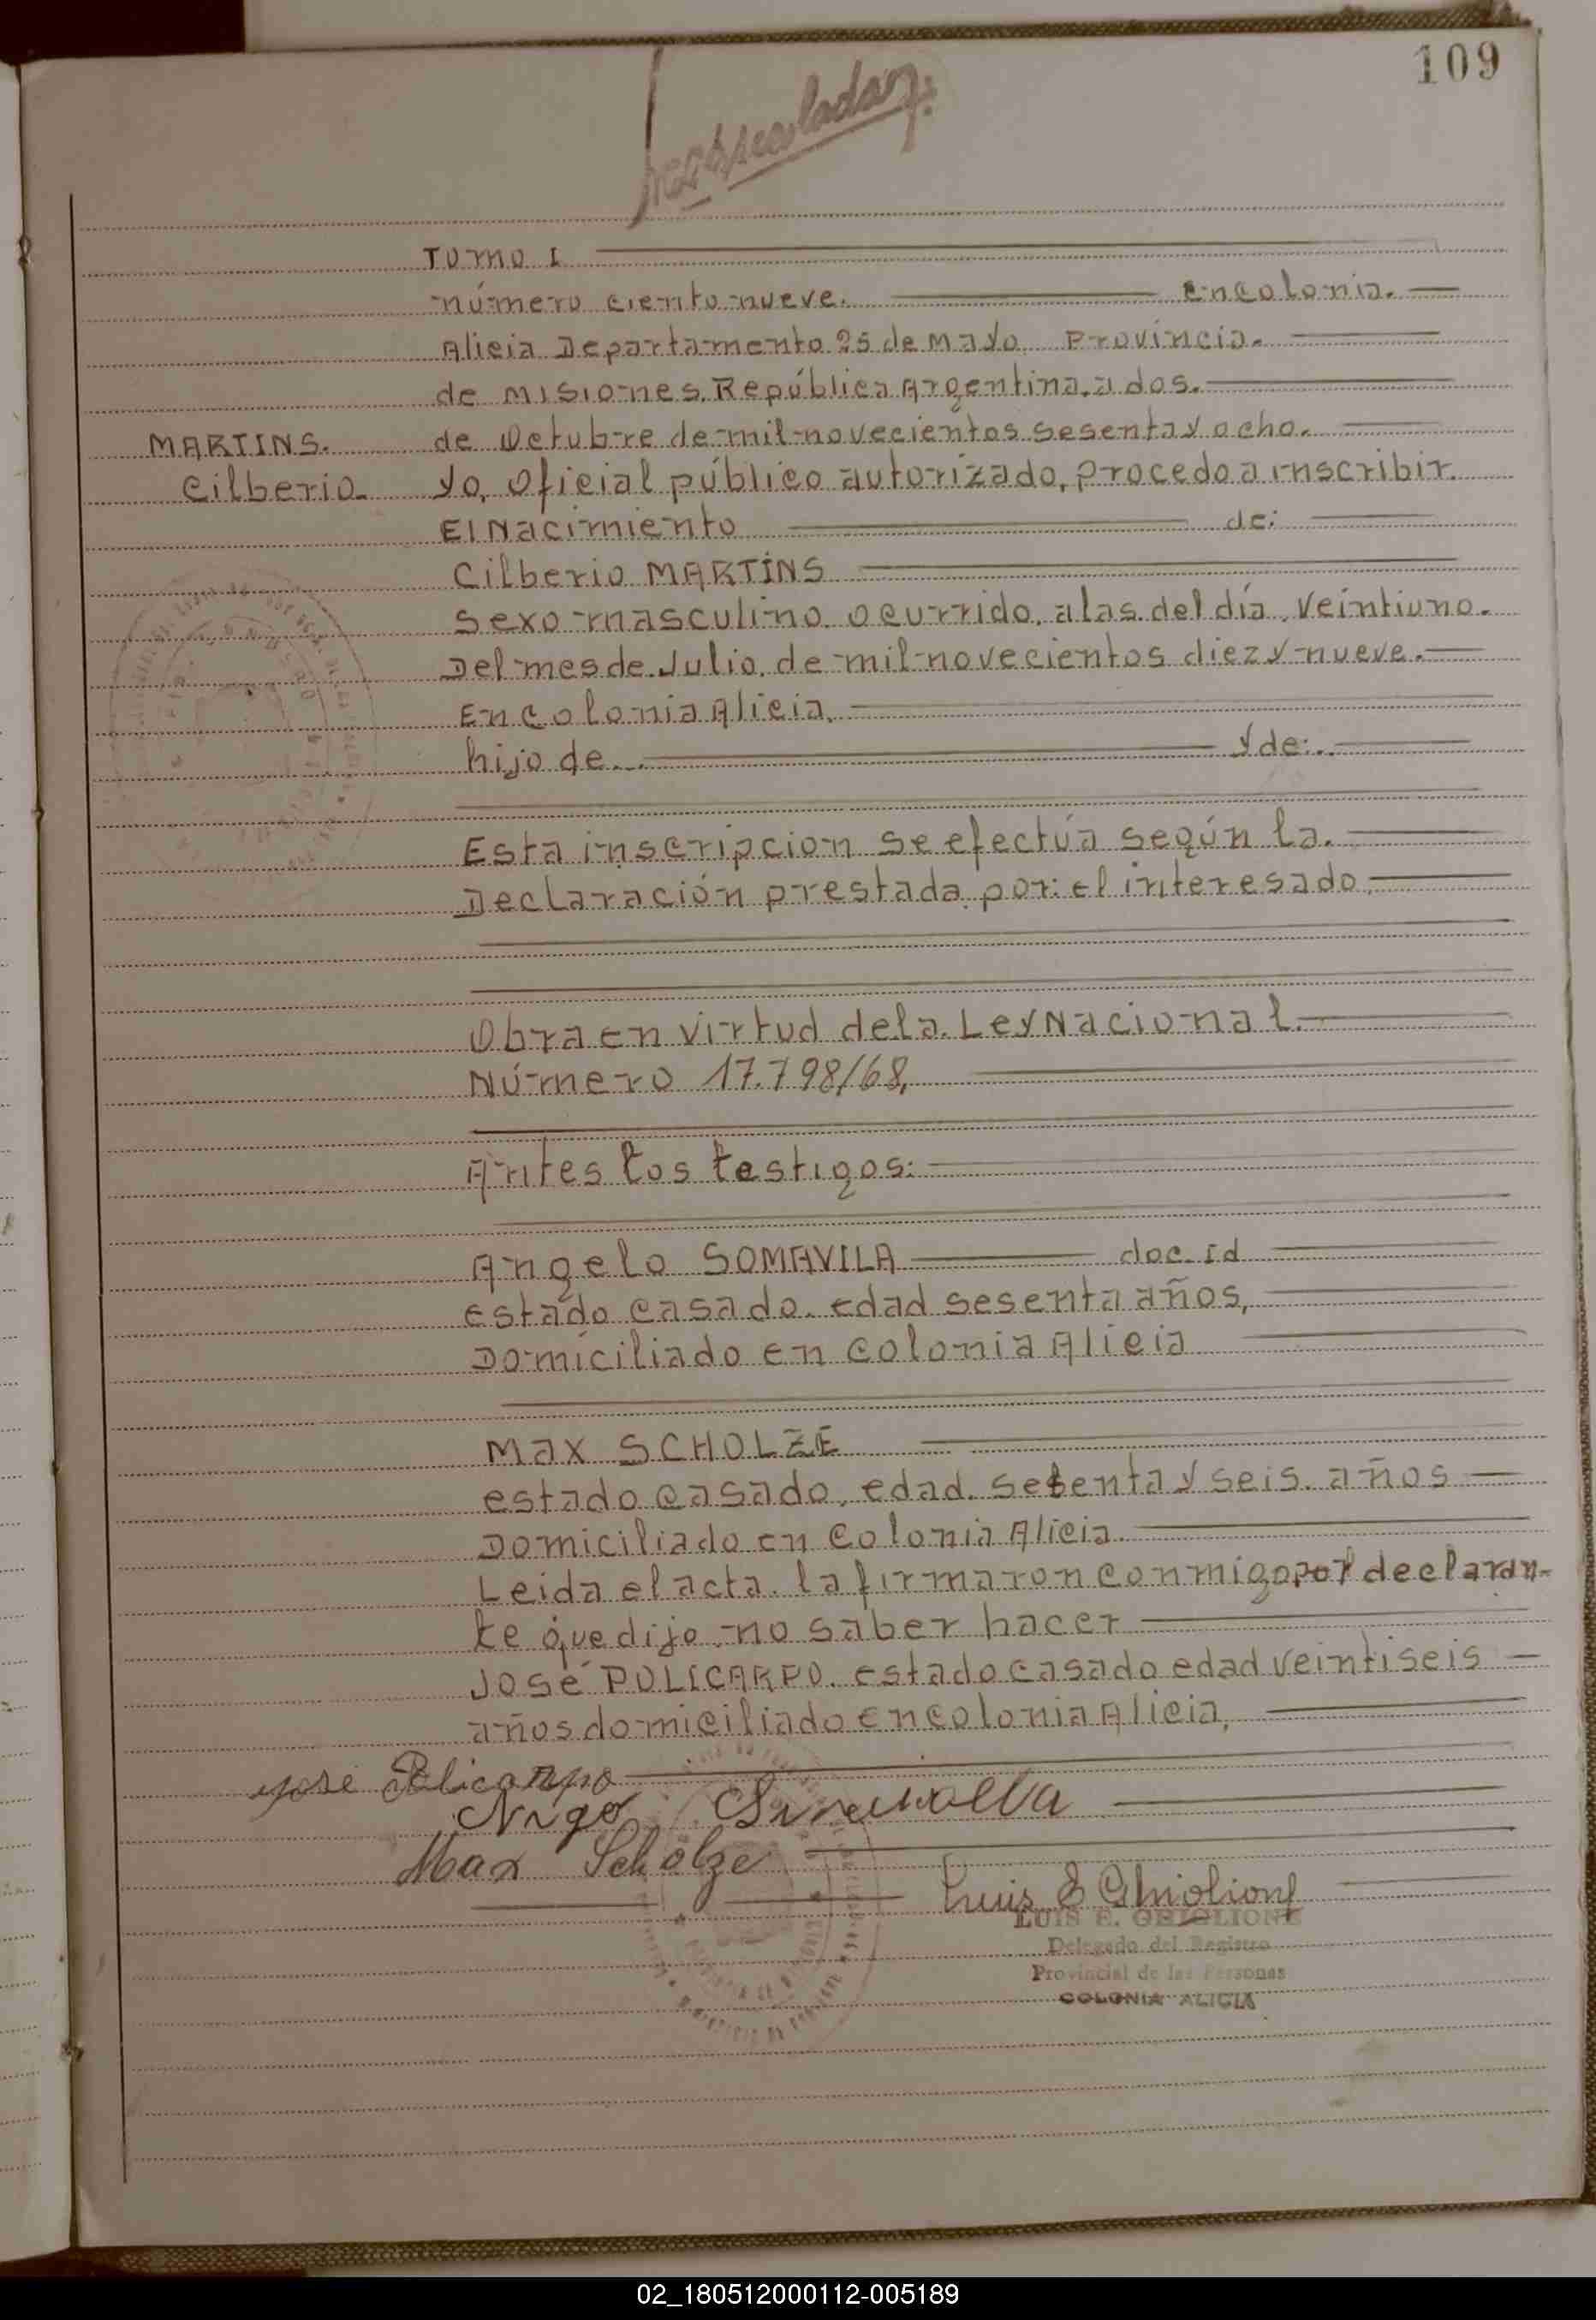 109
Tomo I
número ciento nueve. en colonia.
Alicia Departamento 25 de Mayo Provincia.
de Misiones, República Argentina, a dos.
MARTINS. de Octubre de mil novecientos sesenta y ocho.
Cilberio yo, Oficial público autorizado, procedo a inscribir.
El Nacimiento de:
Cilberio MARTINS
Sexo masculino. ocurrido, a las. del día, Veintiuno.
Del mes de. Julio, de mil novecientos diez y nueve.
En Colonia Alicia.
hijo de... y de:..
Esta inscripcion se efectúa según la.
Declaración prestada. por: el interesado.
Obra en virtud de la. Ley Nacional.
Número 17.798/68,
Antes los testigos:
Angelo SOMAVILA doc. Id
estado casado. edad sesenta años,
Domiciliado en Colonia Alicia
Max SCHOLZE
estado casado, edad. setenta y seis. años
Domiciliado en Colonia Alicia.
Leida el acta. la firmaron conmigo, por declaran-
te que dijo, no saber hacer
José POLICARPO. estado casado edad veintiseis
años domiciliado en colonia Alicia,
José Policarpo
Max Scholze
Luis E Ghiolione
LUIS E. GHIOLIONE
Delegado del Registro
Provincial de las Personas
COLONIA ALICIA
02_180512000112-005189